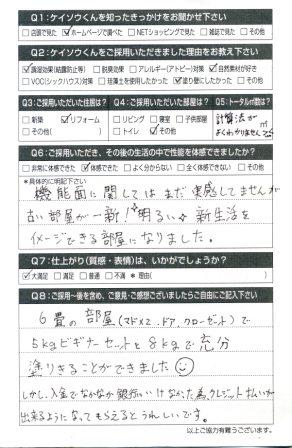 Q1：ケイソウくんを知ったきっかけをお聞かせ下さい
□店頭で見た ☑ホームページで調べた □NETショッピングで見た □雑誌で見た □その他
Q2：ケイソウくんをご採用いただきました理由をお教え下さい
☑調湿効果(結露防止等) □脱臭効果 □アレルギー(アトピー)対策 ☑自然素材が好き
□VOC(シックハウス)対策 □珪藻土を使用したかった ☑塗り壁にしたかった □その他
Q3：ご採用いただいた住居は? Q4：ご採用いただいた部屋は? Q5：トータル㎡数は?
□新築 ☑リフォーム □リビング □寝室 □子供部屋 計算法が
□その他( ) □トイレ ☑その他 よくわかりません ㎡
Q6：ご採用いただき、その後の生活の中で性能を体感できましたか?
□非常に体感できた ☑体感できた □よく分からない □全く体感できない □その他
*具体的に明記下さい
機能面に関してはまだ実感してませんが
古い部屋が一新! 明るい 新生活を
イメージできる部屋になりました。
Q7：仕上がり(質感・表情)は、いかがでしょうか?
☑大満足 □満足 □普通 □不満 *理由( )
Q8：ご採用〜後を含め、ご意見・ご感想ございましたらご自由にご記入下さい
6畳の部屋(マド×2、ドア、クローゼット)で
5kgビギナーセットと8kgで充分
塗りきることができました
しかし、入金でなかなか銀行にいけなかった為、クレジット払いが
出来るようになってもらえるとうれしいです。
以上ご協力有難うございます。